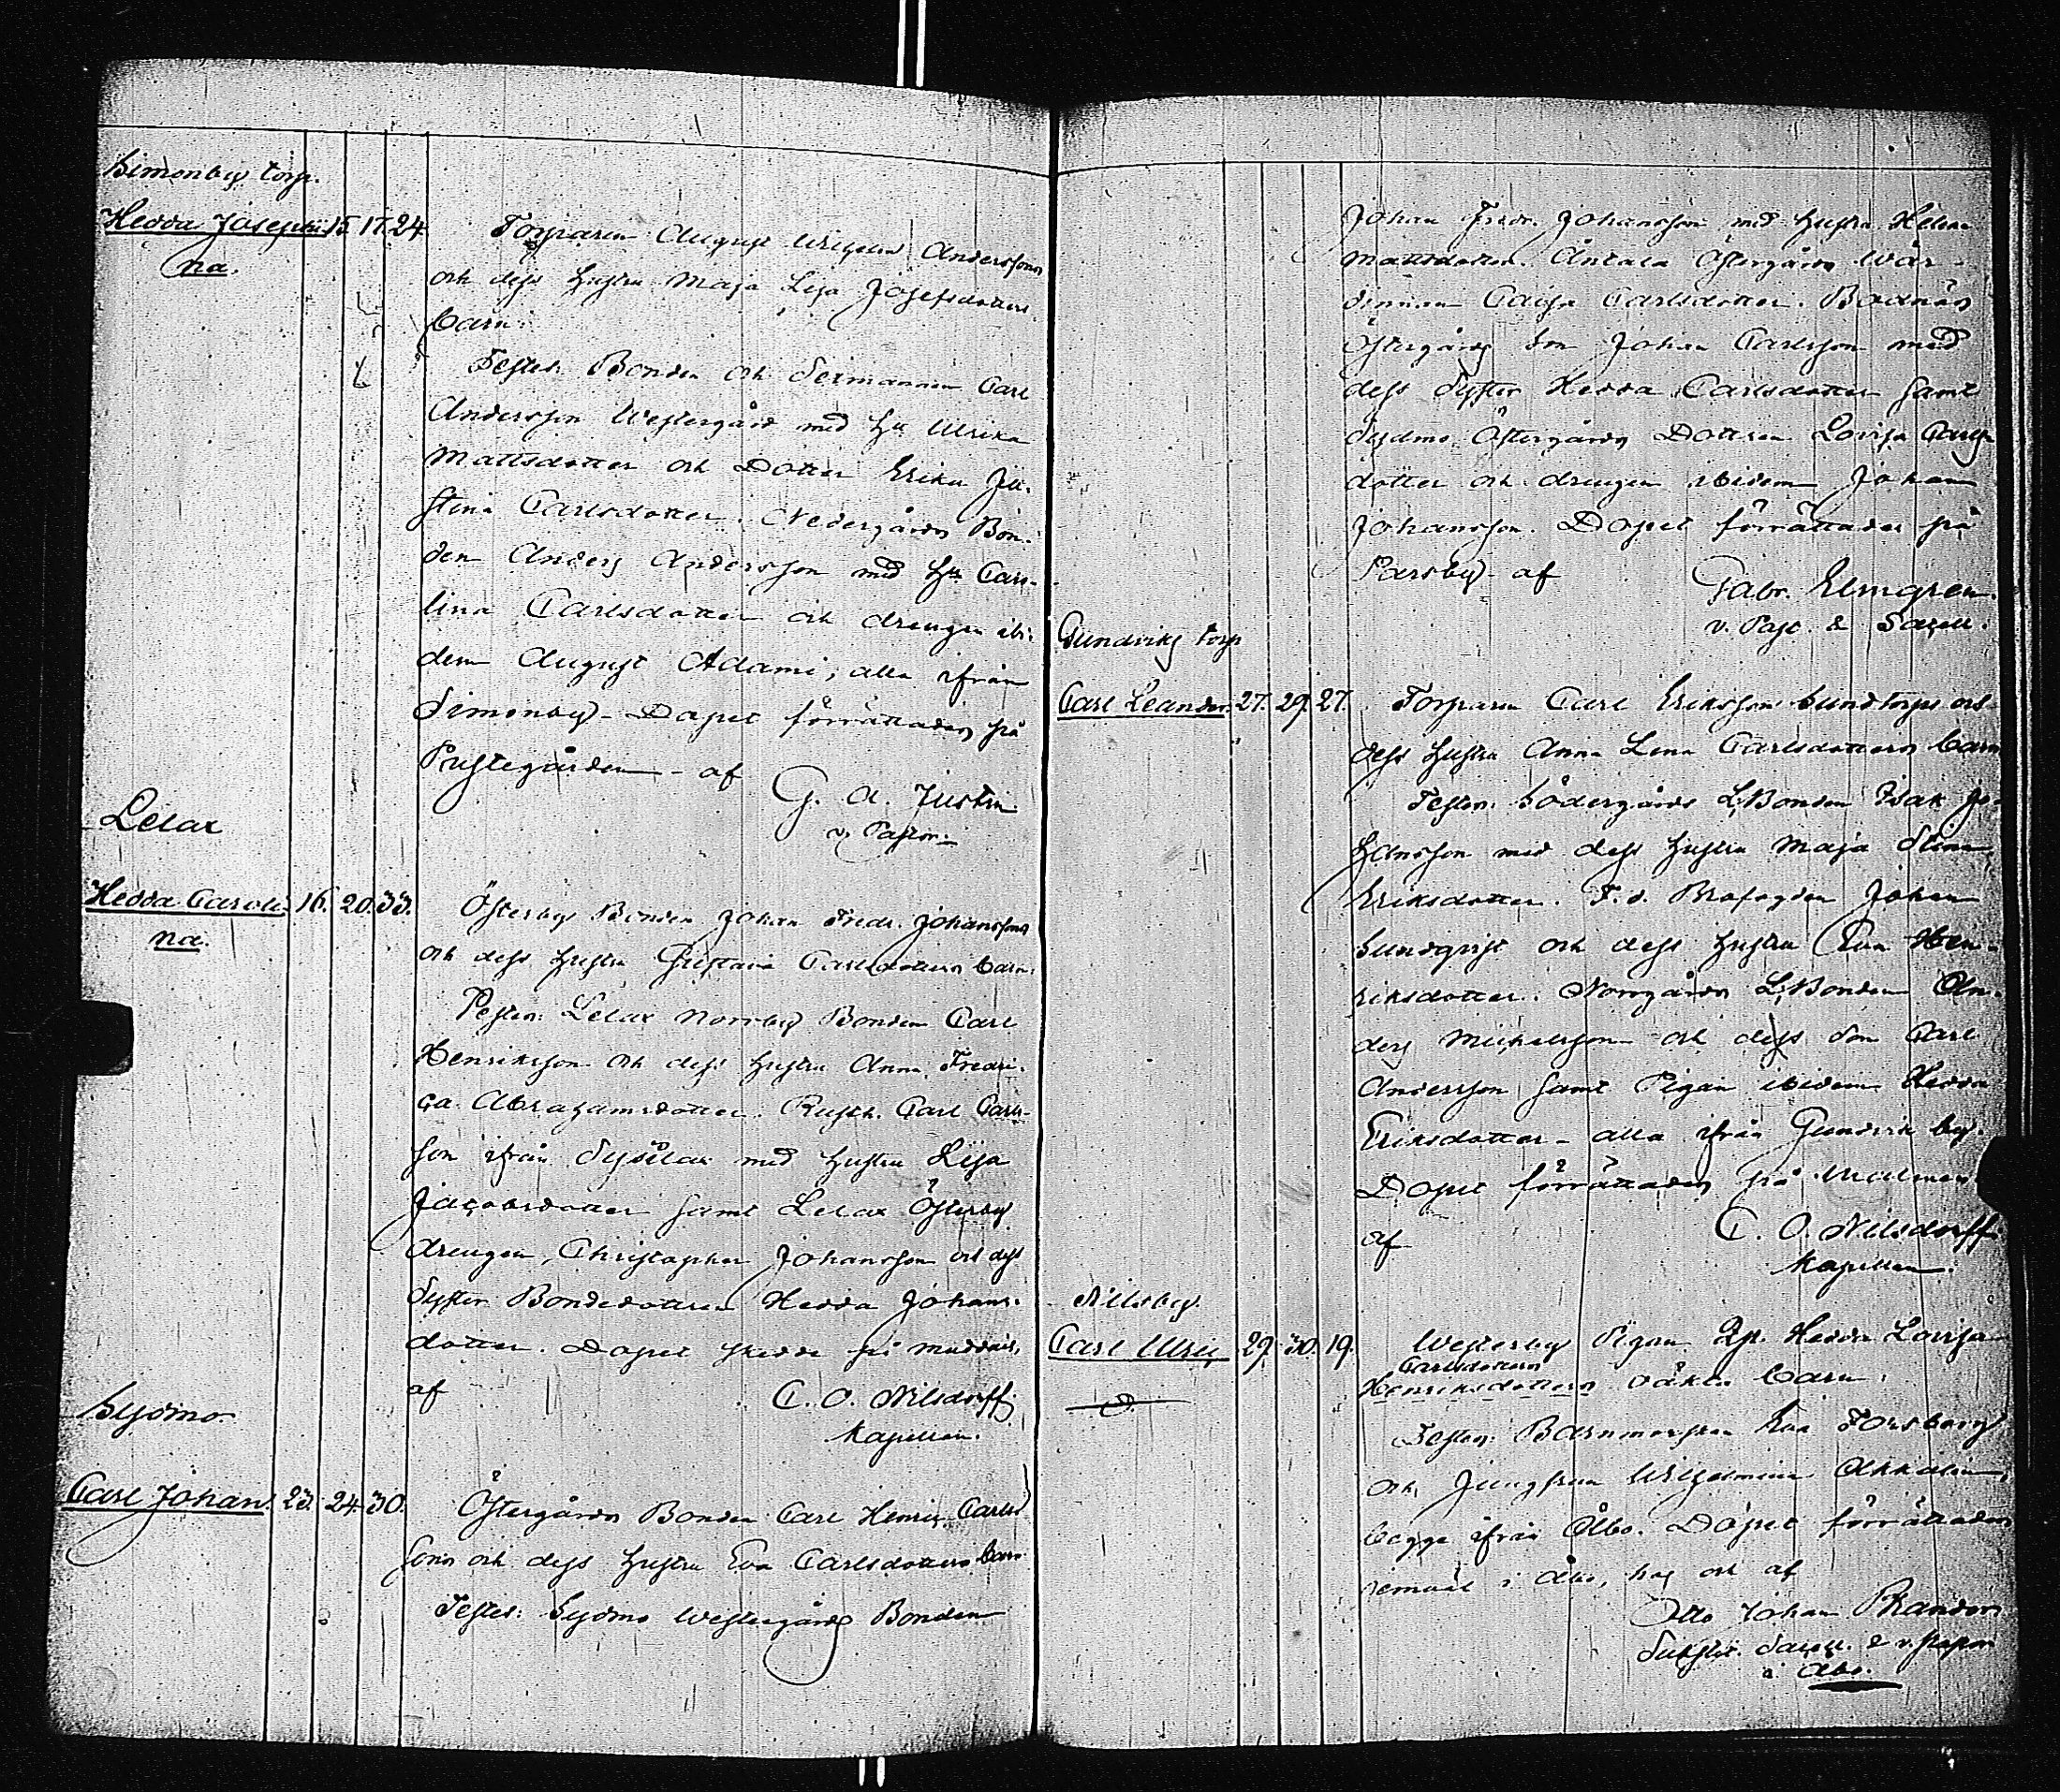 Simonby torp.
Hedda Josephi 15. 17. 24.
na.
Torparen August Wilhelm Anderssons
och dess hustru Maja Lisa Josefsdotters
barn.
Testes: Bonden och Sexmannen Carl
Andersson Westergård med Hu Ulrika
Mattsdotter och Dotter Erika Ju-
stina Carlsdotter. Nedergårds Bon-
den Anders Andersson med Hu Caro-
lina Carlsdotter och drengen ibi-
dem August Adami; alla ifrån
Simonby - Dopet förrättades på
Prestegården - af
G. A. Justin
v. Pastor.
Lelax
Hedda Caroli- 16. 20. 33.
na.
Österby Bonden Johan Fredr. Johanssons
och dess hustru Gustava Carlsdotters barn.
Testes: Lelax Norrby Bonden Carl
Henriksson och dess hustru Anna Fredri-
ca Abrahamsdotter. Rusth. Carl Carls-
son ifrån Sysilax med hustru Lisa
Jacobsdotter samt Lelax Österby
drengen Christopher Johansson och dess
Syster Bondedottren Hedda Johans-
dotter. Dopet skedde på
af
C. O. Nilsdorff
Kapellan.
Sydmo
Carl Johan. 23. 24. 30.
Östergårds Bonden Carl Henric Carls-
sons och dess hustru Eva Carlsdotters barn
Testes: Sydmo Westergårds Bonden
Johan Fredr. Johansson med hustru Helena
Mattsdotter. Östergårds Wär-
dinnan Caisa Carlsdotter. Bodnäs
Östergårds Son Johan Carlsson med
dess Syster Hedda Carlsdotter samt
Sydmo Östergårds Dottren Lovisa Carls-
dotter och drengen ibidem Johan
Johansson. Dopet förrättades på
Parsby - af
Gabr. Elmgren.
v. Past. & Sacell.
Gundviks torp
Carl Leander. 27. 29. 27.
Torparen Carl Eriksson Sundtorps och
dess hustru Anna Lena Carlsdotters barn
Testes: Södergårds L.Bonden Isak Jo-
hansson med dess hustru Maja Stina
Eriksdotter. F. d. Brofogden Johan
Sundqvist och dess hustru Eva Hen-
riksdotter. Norrgårds L.Bonden An-
ders Michelsson och dess Son Carl
Andersson samt Pigan ibidem Hedda
Eriksdotter - alla ifrån Gundvik by.
Dopet förrättades på Malmen
af
C. O. Nilsdorff
Kapellan.
Nilsby.
Carl Ulric 29. 30. 19.
Westerby Pigan Hedda Lovisa
Carlsdotters
Henriksdotters oäkta barn.
Testes: Barnmorskan Eva Forsberg
och Jungfrun Wilhelmina
begge ifrån Åbo. Dopet förrättades
i Åbo, hos och af
Otto Johan Randon
Substit. Sacell. & v. Pastor
i Åbo.